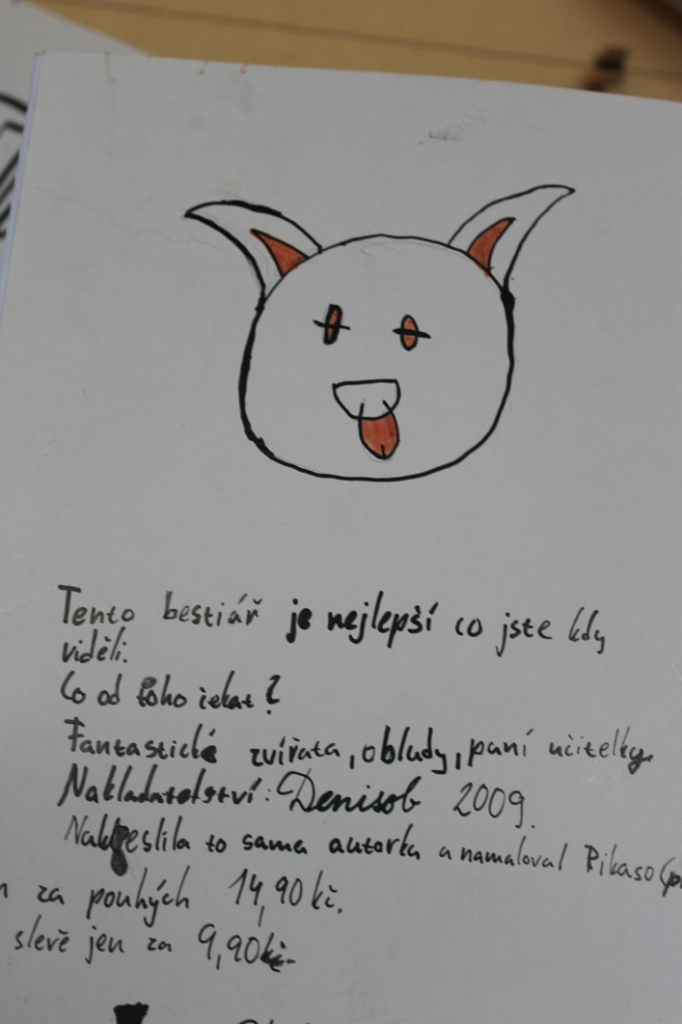 Tento bestiář je nejlepší co jste kdy
viděli.
Co od toho čekat?
Fantastické zvířata, obludy, paní učitelky.
Nakladatelství: Denisob 2009.
Nakreslila to sama autorka a namaloval Pikaso (p
za pouhých 14,90 kč.
slevě jen za 9,90 kč.